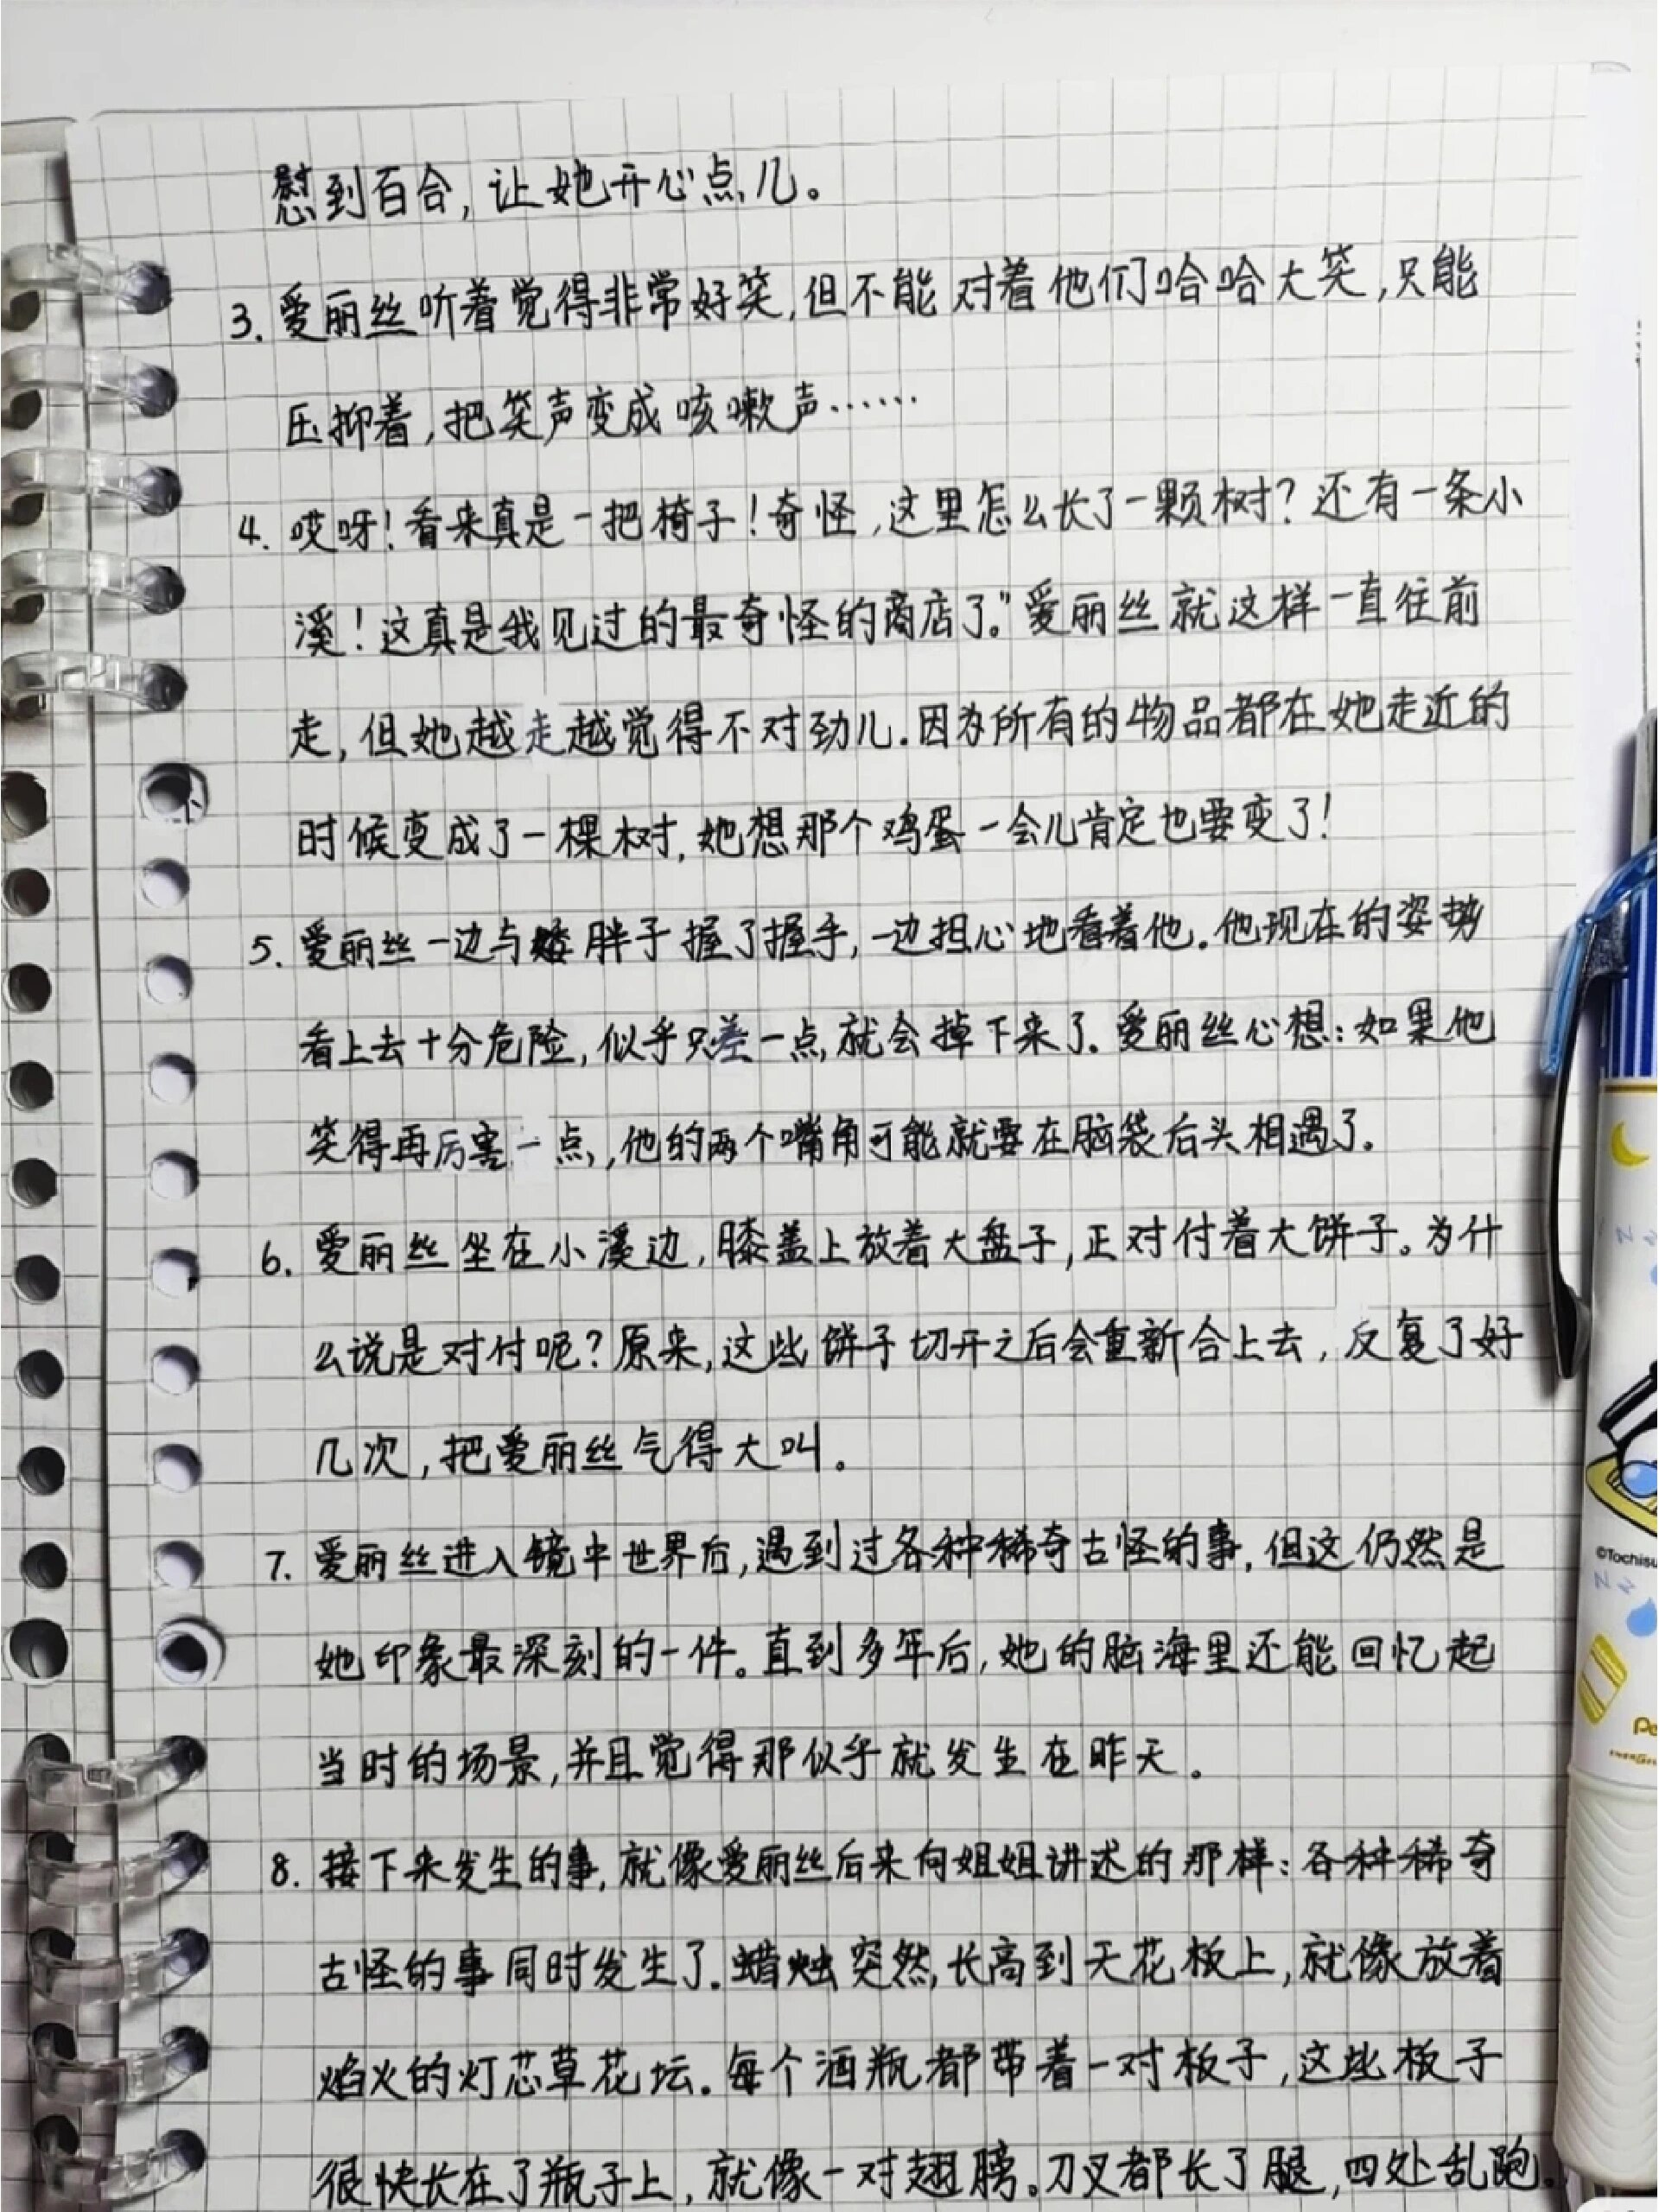 慰到百合，让她开心点儿。
3. 爱丽丝听着觉得非常好笑，但不能对着他们哈哈大笑，只能
压抑着，把笑声变成咳嗽声……
4. 哎呀！看来真是一把椅子！奇怪，这里怎么长了一颗树？还有一条小
溪！这真是我见过的最奇怪的商店了。”爱丽丝就这样一直往前
走，但她越走越觉得不对劲儿.因为所有的物品都在她走近的
时候变成了一棵树，她想那个鸡蛋一会儿肯定也要变了！
5. 爱丽丝一边与矮胖子握了握手，一边担心地看着他.他现在的姿势
看上去十分危险，似乎只差一点，就会掉下来了.爱丽丝心想：如果他
笑得再厉害一点，他的两个嘴角可能就要在脑袋后头相遇了.
6. 爱丽丝坐在小溪边，膝盖上放着大盘子，正对付着大饼子。为什
么说是对付呢？原来，这些饼子切开之后会重新合上去，反复了好
几次，把爱丽丝气得大叫。
7. 爱丽丝进入镜中世界后，遇到过各种稀奇古怪的事，但这仍然是
她印象最深刻的一件。直到多年后，她的脑海里还能回忆起
当时的场景，并且觉得那似乎就发生在昨天。
8. 接下来发生的事，就像爱丽丝后来向姐姐讲述的那样：各种稀奇
古怪的事同时发生了.蜡烛突然，长高到天花板上，就像放着
焰火的灯芯草花坛.每个酒瓶都带着一对板子，这些板子
很快长在了瓶子上，就像一对翅膀。刀叉都长了腿，四处乱跑。
©Tochisu
Pe